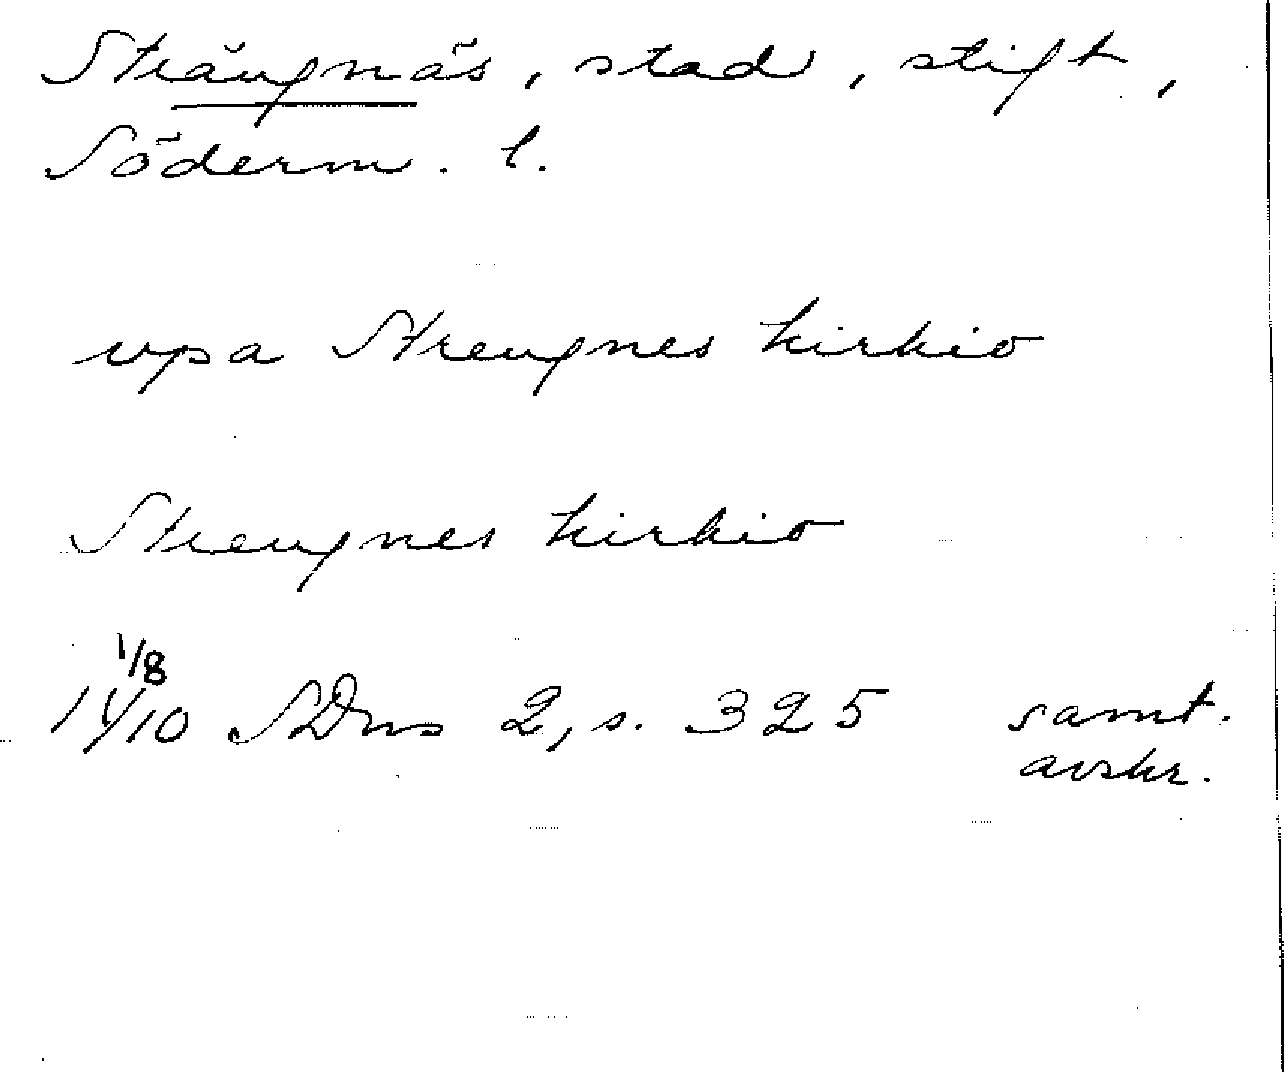 Strängnäs, stad, stift,
Söderm. l.
vpa Strengnes kirkio
Strengnes kirkio
1/8
1410 SDns 2, s. 325 samt.
avskr.